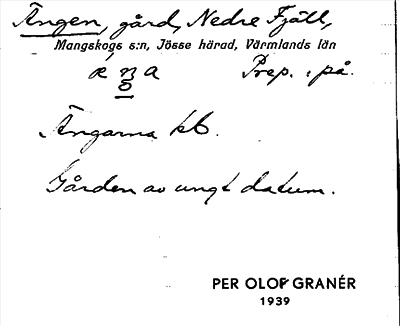 Ängen, gård, Nedre Fjäll,
Mangskogs s:n, Jösse härad, Värmlands län
Prep. : på.
Ängarna kb.
Gården av ungt datum.
PER OLOF GRANÉR
1939